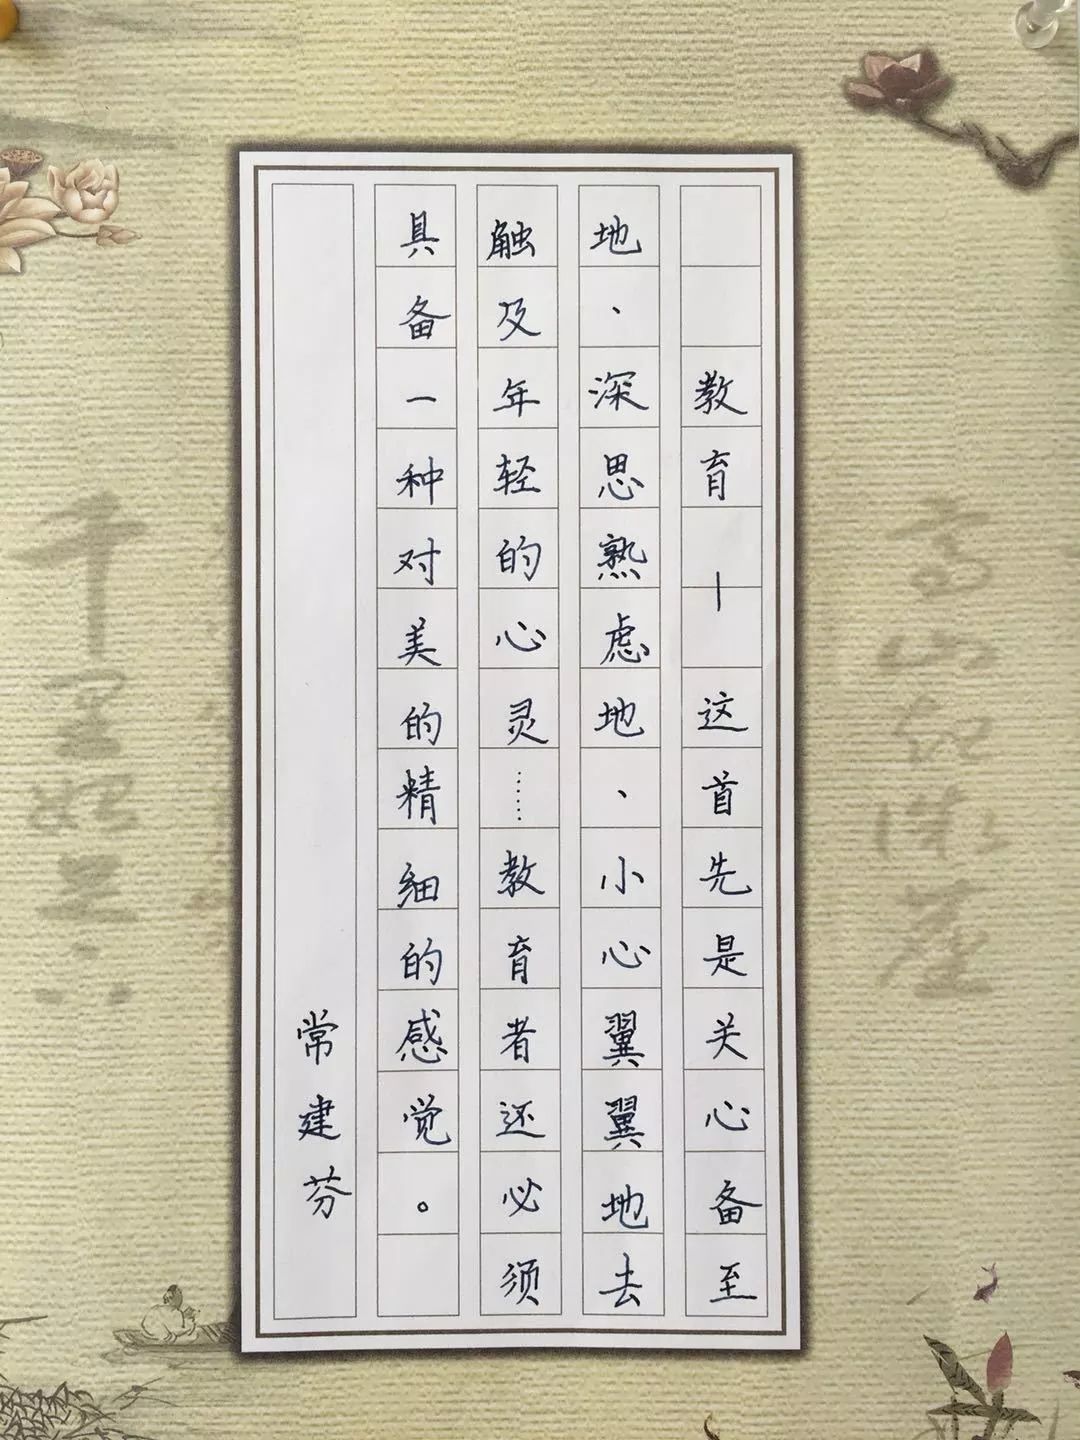 教育—这首先是关心备至
地、深思熟虑地、小心翼翼地去
触及年轻的心灵……教育者还必须
具备一种对美的精细的感觉。
常建芬